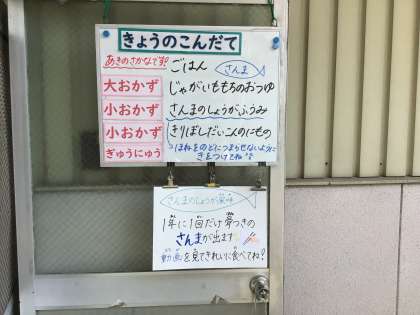 きょうのこんだて
あきのさかなです!
ごはん
さんま
大おかず
じゃがいももちのおつゆ
小おかず
さんまのしょうがふうみ
小おかず
きりぼしだいこんのにもの
ぎゅうにゅう
ほねをのどにつまらせないように
きをつけてね
さんまのしょうが風味
1年に1回だけ骨つきの
さんまが出ます
動画を見てきれいに食べてね!